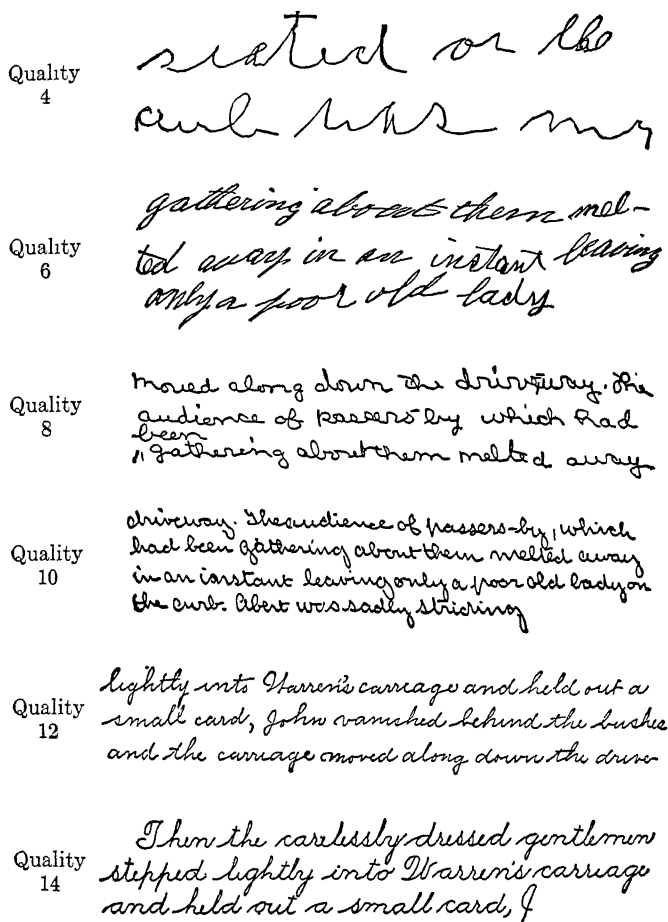 Quality
4
seated on the
curb was my
Quality
6
gathering about them mel-
ted away in an instant leaving
only a poor old lady
Quality
8
moved along down the driveway. The
audience of passers-by which had
been
" gathering about them melted away
Quality
10
driveway. The audience of passers-by, which
had been gathering about them melted away
in an instant leaving only a poor old lady on
the curb. Albert was sadly striding
Quality
12
lightly into Warren's carreage and held out a
small card, John vanished behind the bushes
and the carriage moved along down the drive-
Quality
14
Then the carelessly dressed gentlemen
stepped lightly into Warren's carriage
and held out a small card, J